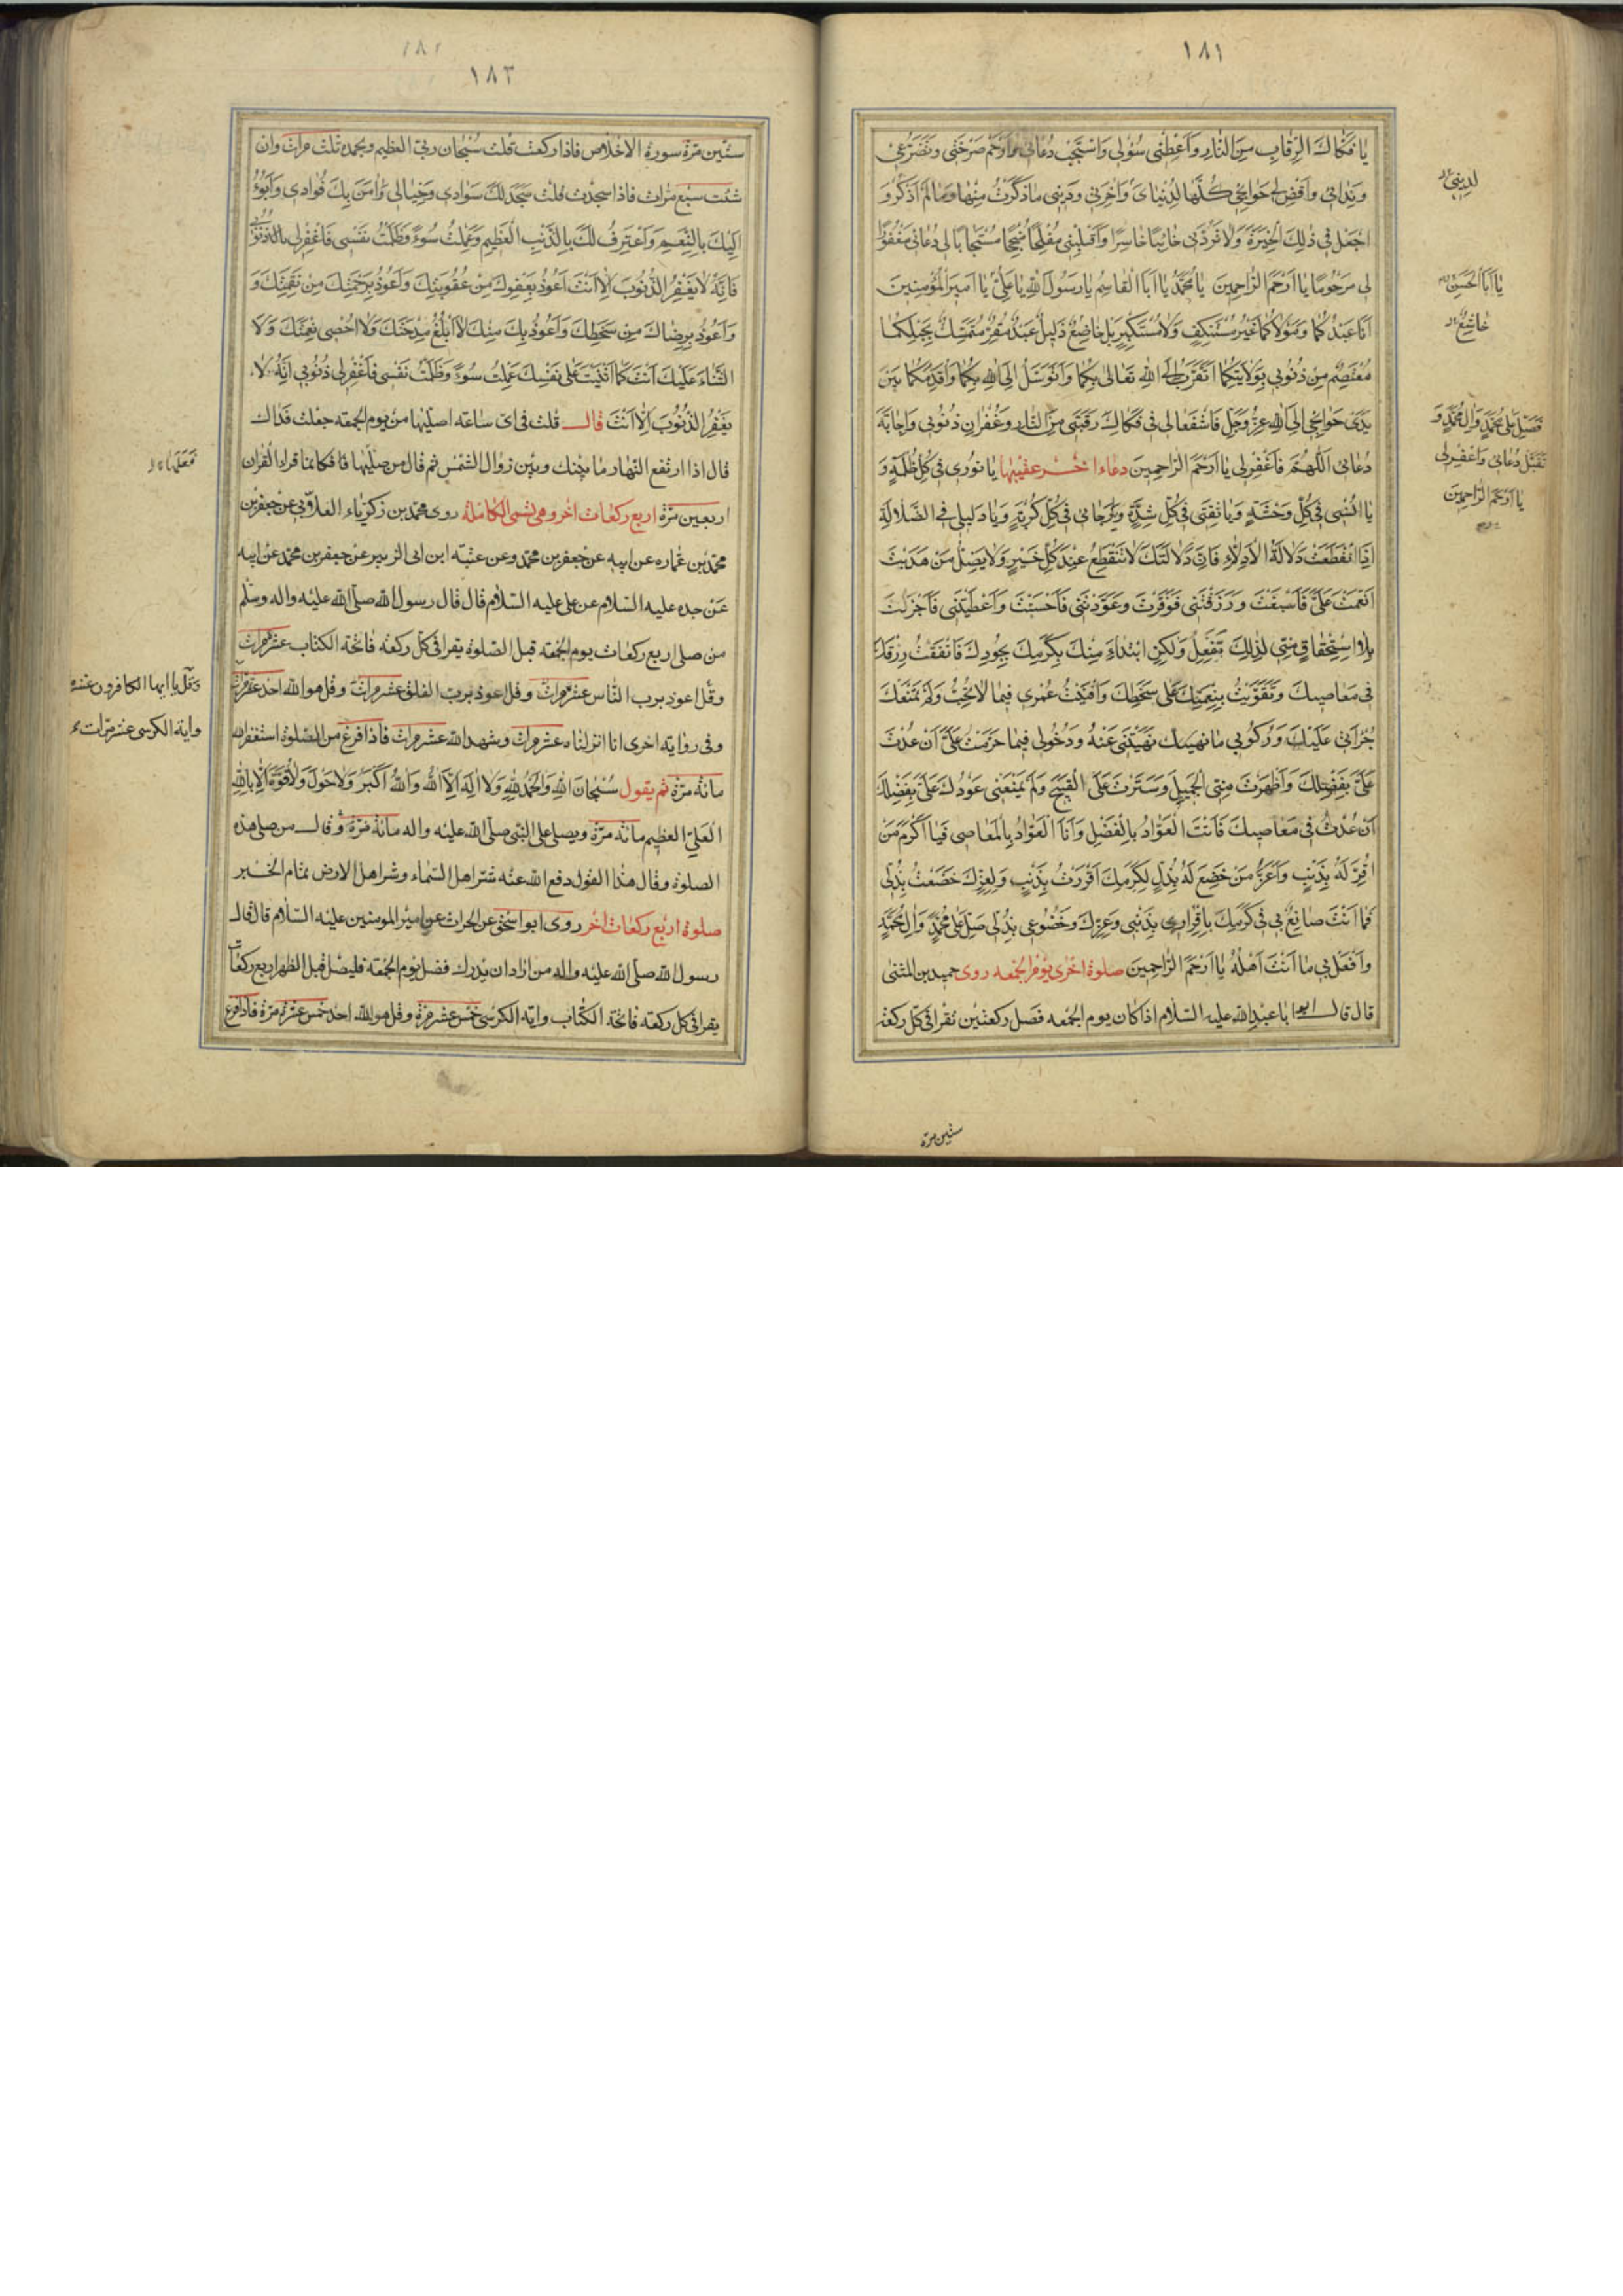 ١٨١
يا فَكّاكَ الرِّقابِ مِنَ النّارِ وَأَعْطِنى سُؤلى وَاسْتَجِبْ دُعائى وَارْحَمْ صَرْخَتى وتَضَرُّعى
ونِدائى واقْضِ لى حَوائِجى كُلَّها لِدُنْياىَ وَآخِرَتى ودينى ماذَكَرْتُ مِنْها ومالَمْ أَذْكُرْ وَ
اجْعَلْ فى ذٰلِكَ الْخِيَرَةَ وَلا تَرُدَّنى خائِبًا خاسِرًا وَاقْلِبْنى مُفْلِحًا مُنْجِحًا مُسْتَجابًا لى دُعائى مَغْفُورًا
لى مَرْحُومًا يا أَرْحَمَ الرّاحِمينَ يا مُحَمَّدُ يا أَبَا الْقاسِمِ يا رَسُولَ اللهِ يا عَلِىُّ يا أَميرَ الْمُؤْمِنينَ
أَنا عَبْدُكُما ومَوْلاكُما غَيْرُ مُسْتَنْكِفٍ وَلا مُسْتَكْبِرٍ بَلْ خاضِعٌ ذَليلٌ عَبْدٌ مُقِرٌّ مُتَمَسِّكٌ بِحَبْلِكُما
مُعْتَصِمٌ مِنْ ذُنُوبى بِوَلايَتِكُما أَتَقَرَّبُ إِلَى اللهِ تَعالى بِكُما وَأَتَوَسَّلُ إِلَى اللهِ بِكُما وَأُقَدِّمُكُما بَيْنَ
يَدَىْ حَوائِجى إِلَى اللهِ عَزَّ وَجَلَّ فَاشْفَعا لى فى فَكاكِ رَقَبَتى مِنَ النّارِ وغُفْرانِ ذُنُوبى وَإِجابَةِ
دُعائى اَللّهُمَّ فَاغْفِرْ لى يا أَرْحَمَ الرّاحِمينَ دعاء اخر عقيبها يا نُورى فى كُلِّ ظُلْمَةٍ وَ
يا أُنْسى فى كُلِّ وَحْشَةٍ وَيا ثِقَتى فى كُلِّ شِدَّةٍ ويا رَجائى فى كُلِّ كُرْبَةٍ وَيا دَليلى فِى الضَّلالَةِ
إِذَا انْقَطَعَتْ دَلالَةُ الْأَدِلّاءِ فَإِنَّ دَلالَتَكَ لا تَنْقَطِعُ عِنْدَ كُلِّ خَيْرٍ وَلا يَضِلُّ مَنْ هَدَيْتَ
أَنْعَمْتَ عَلَىَّ فَأَسْبَغْتَ وَرَزَقْتَنى فَوَفَّرْتَ وعَوَّدْتَنى فَأَحْسَنْتَ وَأَعْطَيْتَنى فَأَجْزَلْتَ
بِلا اسْتِحْقاقٍ مِنّى لِذٰلِكَ بِفِعْلٍ وَلٰكِنِ ابْتِداءً مِنْكَ بِكَرَمِكَ بِجُودِكَ فَأَنْفَقْتُ رِزْقَكَ
فى مَعاصيكَ وَتَقَوَّيْتُ بِنِعْمَتِكَ عَلى سَخَطِكَ وَأَفْنَيْتُ عُمْرى فيما لا تُحِبُّ وَلَمْ تَمْنَعْكَ
جُرْأَتى عَلَيْكَ وَرُكُوبى ما نَهَيْتَنى عَنْهُ وَدُخُولى فيما حَرَّمْتَ عَلَىَّ أَنْ عُدْتَ
عَلَىَّ بِفَضْلِكَ وَأَظْهَرْتَ مِنِّى الْجَميلَ وَسَتَرْتَ عَلَىَّ الْقَبيحَ وَلَمْ يَمْنَعْنى عَوْدُكَ عَلَىَّ بِفَضْلِكَ
أَنْ عُدْتُ فى مَعاصيكَ فَأَنْتَ الْعَوّادُ بِالْفَضْلِ وَأَنَا الْعَوّادُ بِالْمَعاصى فَيا أَكْرَمَ مَنْ
أُقِرَّ لَهُ بِذَنْبٍ وَأَعَزَّ مَنْ خَضَعَ لَهُ بِذُلٍّ لِكَرَمِكَ أَقْرَرْتُ بِذَنْبى وَلِعِزِّكَ خَضَعْتُ بِذُلّى
فَما أَنْتَ صانِعٌ بى فى كَرَمِكَ بِإِقْرارى بِذَنْبى وَعِزِّكَ وخُضُوعى بِذُلّى صَلِّ عَلى مُحَمَّدٍ وَآلِ مُحَمَّدٍ
وَافْعَلْ بى ما أَنْتَ أَهْلُهُ يا أَرْحَمَ الرّاحِمينَ صلوة اخرى يوم الجمعه روى حميد بن المثنى
قال قال ابو اباعبدالله عليه السلام اذا كان يوم الجمعه فصل ركعتين تقرا فى كل ركعه
ستين مرة
لدينى
يا أَبَا الْحَسَنِ
خاشِعٌ
فَصَلِّ عَلى مُحَمَّدٍ وَآلِ مُحَمَّدٍ وَ
تَقَبَّلْ دُعائى وَاغْفِرْ لى
يا أَرْحَمَ الرّاحِمينَ
١٨٢
١٨٣
ستين مرة سورة الاخلاص فاذا ركعت قلت سُبْحان ربى العظيم وبحمده ثلث مرات وان
شئت سبع مرات فاذا سجدت قلت سَجَدَ لَكَ سَوادى وَخَيالى وَآمَنَ بِكَ فُؤادى وَأَبُوءُ
إِلَيْكَ بِالنِّعَمِ وَأَعْتَرِفُ لَكَ بِالذَّنْبِ الْعَظيمِ وَعَمِلْتُ سُوءً وَظَلَمْتُ نَفْسى فَاغْفِرْ لى
فَإِنَّهُ لا يَغْفِرُ الذُّنُوبَ إِلّا أَنْتَ أَعُوذُ بِعَفْوِكَ مِنْ عُقُوبَتِكَ وَأَعُوذُ بِرَحْمَتِكَ مِنْ نَقِمَتِكَ وَ
وَأَعُوذُ بِرِضاكَ مِنْ سَخَطِكَ وَأَعُوذُ بِكَ مِنْكَ لا أَبْلُغُ مِدْحَتَكَ وَلا أُحْصى نِعْمَتَكَ وَلا
الثَّناءَ عَلَيْكَ أَنْتَ كَما أَثْنَيْتَ عَلى نَفْسِكَ عَمِلْتُ سُوءً وَظَلَمْتُ نَفْسى فَاغْفِرْ لى ذُنُوبى إِنَّهُ لا
يَغْفِرُ الذُّنُوبَ إِلّا أَنْتَ قال قلت فى اى ساعه اصليها من يوم الجمعه جعلت فداك
قال اذا ارتفع النهار ما بينك وبين زوال الشمس ثم قال من صليها فكانما قرا القران
اربعين مرة اربع ركعات اخر وهى تسمى الكاملة روى محمد بن زكرياء الغلابى عن جعفر بن
محمد بن عماره عن ابيه عن جعفر بن محمد وعن عتبه ابن ابى الزبير عن جعفر بن محمد عن ابيه
عن جده عليه السلام عن على عليه السلام قال قال رسول الله صلى الله عليه واله وسلم
من صلى اربع ركعات يوم الجمعه قبل الصلوة يقرا فى كل ركعه فاتحة الكتاب عشر مرات
وقل اعوذ برب الناس عشر مرات وقل اعوذ برب الفلق عشر مرات وقل هو الله احد عشر مرات
وفى روايه اخرى انا انزلناه عشر مرات وشهد الله عشر مرات فاذا فرغ من الصلوة استغفر الله
مائة مرة ثم يقول سُبْحانَ اللهِ وَالْحَمْدُ لِلّهِ وَلا إِلهَ إِلَّا اللهُ وَاللهُ أَكْبَرُ وَلا حَوْلَ وَلا قُوَّةَ إِلّا بِاللهِ
الْعَلِىِّ العظيم مائة مرة ويصلى على النبى صلى الله عليه واله مائة مرة وقال من صلى هذه
الصلوة وقال هذا القول دفع الله عنه شر اهل السماء وشر اهل الارض تمام الخبر
صلوة اربع ركعات اخر روى ابو اسحق عن الحرث عن امير المومنين عليه السلام قال قال
رسول الله صلى الله عليه واله من اراد ان يدرك فضل يوم الجمعه فليصل قبل الظهر اربع ركعات
يقرا فى كل ركعه فاتحة الكتاب واية الكرسى خمس عشر مرة وقل هو الله احد خمس عشرة مرة فاذا فرغ
وقل يا ايها الكافرون عشر
واية الكرسى عشر مرات